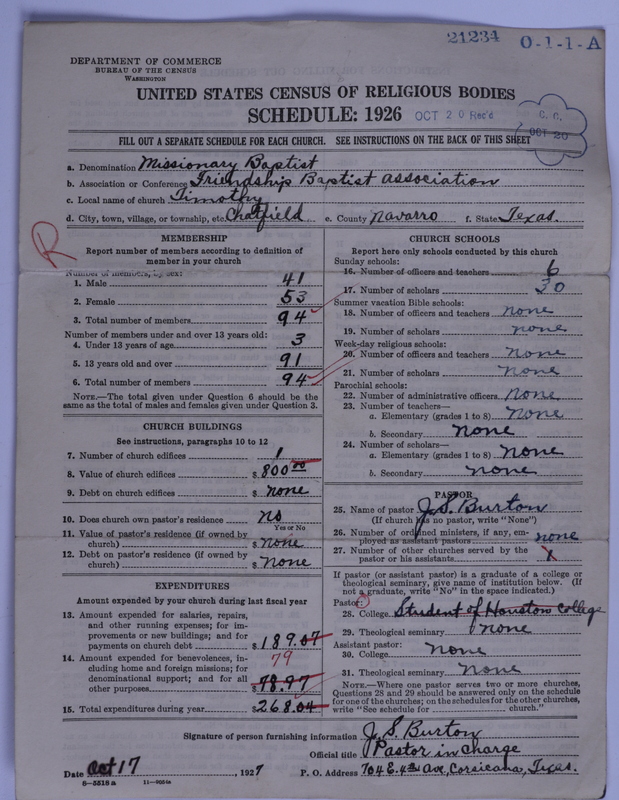 21234 0-1-1-A
DEPARTMENT OF COMMERCE
BUREAU OF THE CENSUS
WASHINGTON
UNITED STATES CENSUS OF RELIGIOUS BODIES
SCHEDULE: 1926 OCT 20 Rec'd
C. C.
OCT 20
FILL OUT A SEPARATE SCHEDULE FOR EACH CHURCH. SEE INSTRUCTIONS ON THE BACK OF THIS SHEET
a. Denomination Missionary Baptist
b. Association or Conference Friendship Baptist association
c. Local name of church Timothy
d. City, town, village, or township, etc. Chatfield e. County Navarro f. State Texas.
R
MEMBERSHIP
Report number of members according to definition of
member in your church
Number of members, by sex:
1. Male 41
2. Female 53
3. Total number of members 94
Number of members under and over 13 years old:
4. Under 13 years of age 3
5. 13 years old and over 91
6. Total number of members 94
NOTE.—The total given under Question 6 should be the
same as the total of males and females given under Question 3.
CHURCH BUILDINGS
See instructions, paragraphs 10 to 12
7. Number of church edifices 1
8. Value of church edifices $800.00
9. Debt on church edifices $none
10. Does church own pastor's residence no
Yes or No
11. Value of pastor's residence (if owned by
church) $none
12. Debt on pastor's residence (if owned by
church) $none
EXPENDITURES
Amount expended by your church during last fiscal year
13. Amount expended for salaries, repairs,
and other running expenses; for im-
provements or new buildings; and for
payments on church debt $189.07
14. Amount expended for benevolences, in-
cluding home and foreign missions; for
denominational support; and for all
other purposes $78.97
79
15. Total expenditures during year $268.04
CHURCH SCHOOLS
Report here only schools conducted by this church
Sunday schools:
16. Number of officers and teachers 6
17. Number of scholars 30
Summer vacation Bible schools:
18. Number of officers and teachers none
19. Number of scholars none
Week-day religious schools:
20. Number of officers and teachers none
21. Number of scholars none
Parochial schools:
22. Number of administrative officers none
23. Number of teachers—
a. Elementary (grades 1 to 8) none
b. Secondary none
24. Number of scholars—
a. Elementary (grades 1 to 8) none
b. Secondary none
PASTOR
25. Name of pastor J. S. Burton
(If church has no pastor, write "None")
26. Number of ordained ministers, if any, em-
ployed as assistant pastors none
27. Number of other churches served by the
pastor or his assistants 1
If pastor (or assistant pastor) is a graduate of a college or
theological seminary, give name of institution below. (If
not a graduate, write "No" in the space indicated.)
Pastor:
28. College Student of Houston College
29. Theological seminary none
Assistant pastor:
30. College none
31. Theological seminary none
NOTE.—Where one pastor serves two or more churches,
Questions 28 and 29 should be answered only on the schedule
for one of the churches; on the schedules for the other churches,
write "See schedule for church."
Signature of person furnishing information J. S. Burton
Official title Pastor in charge
Date Oct 17, 1927 P. O. Address 704 E. 4th Ave, Corsicana, Texas.
8—5516a 11—9554a